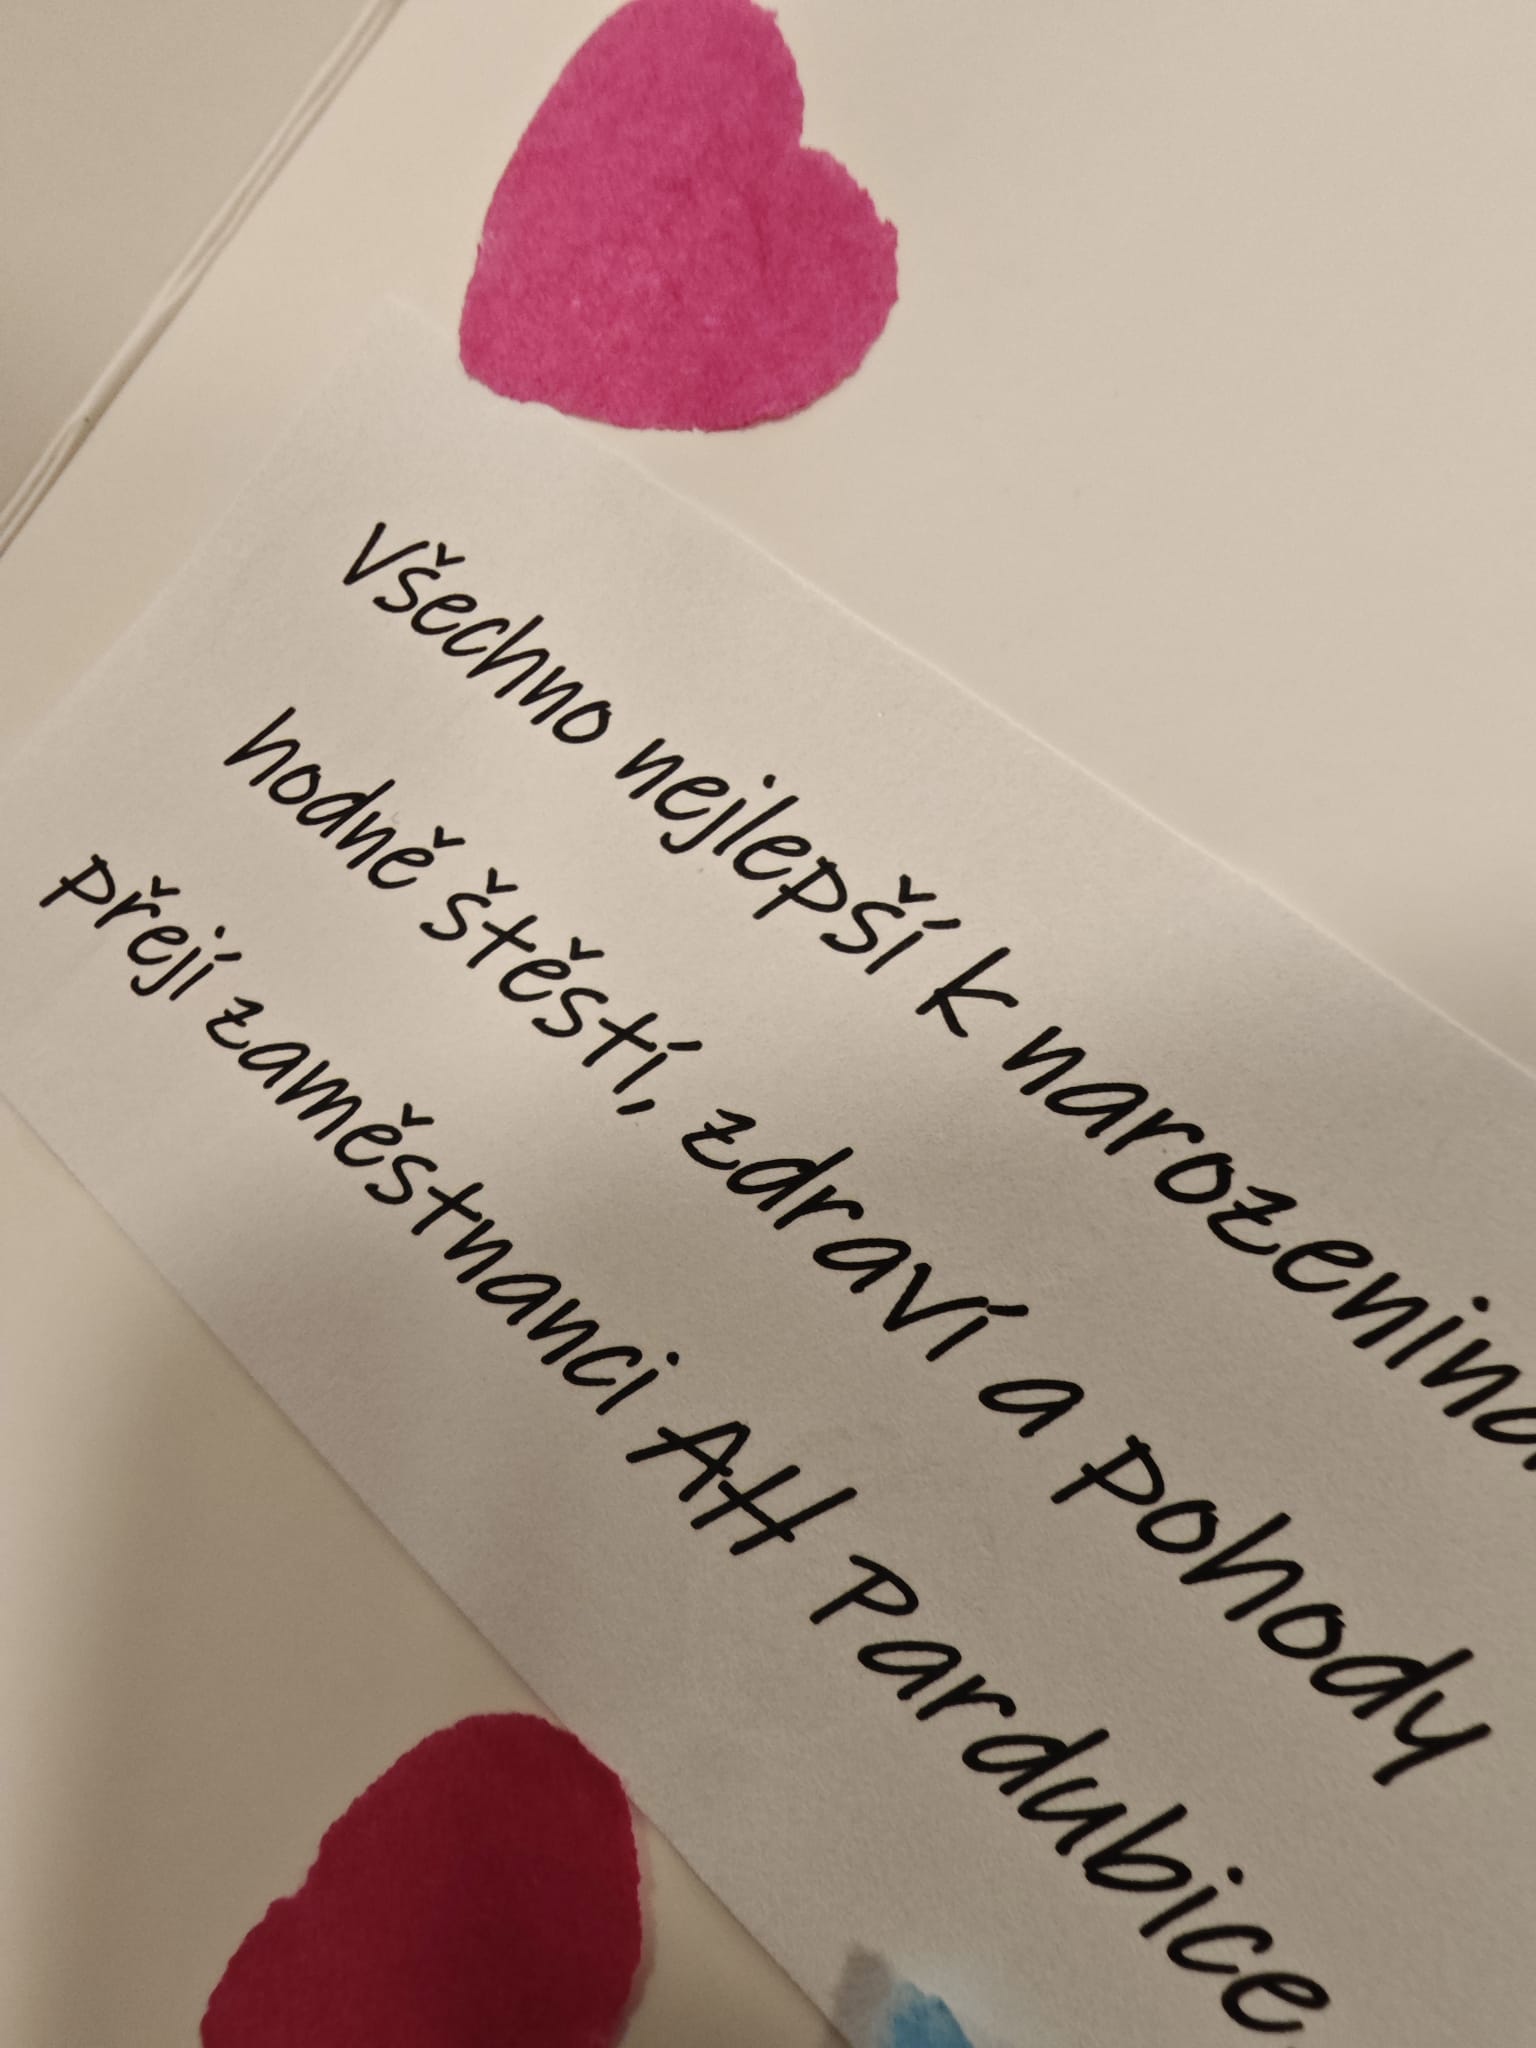 Všechno nejlepší k narozenina
hodně štěstí, zdraví a pohody
přejí zaměstnanci AH Pardubice